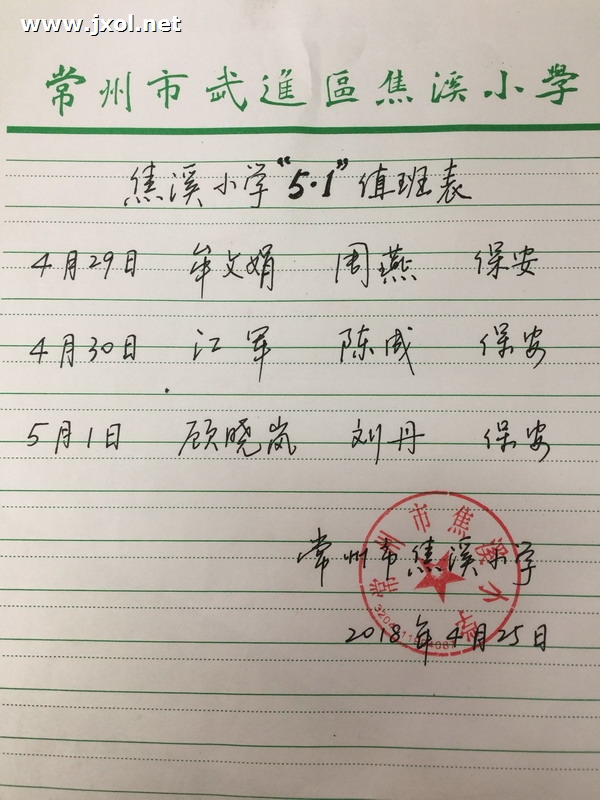 www.jxol.net
常州市武進區焦溪小學
焦溪小学“5·1”值班表
4月29日 牟文娟 周燕 保安
4月30日 江军 陈成 保安
5月1日 顾晓岚 刘丹 保安
常州市焦溪小学
2018年4月25日
常州市焦溪小学